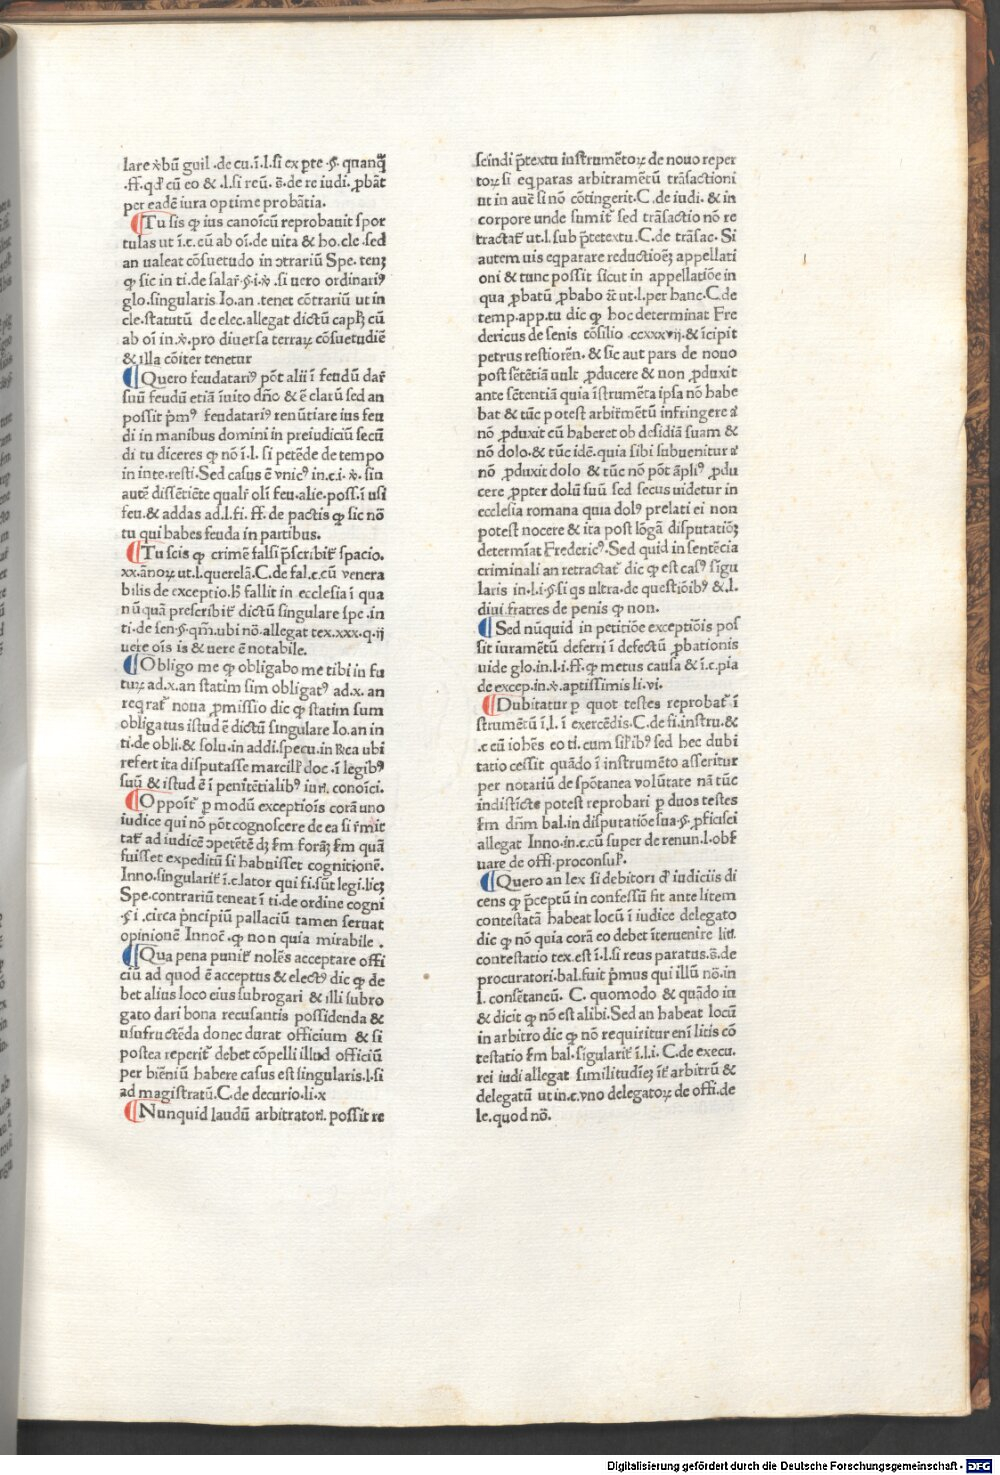 lare ꝟbū guil .de cu.ī.l.si ex ꝑte .§. quanq̄
.ff.qd̓ cū eo & .l.si reū. ē.de re iudi. ꝓbāt
per eadē iura optime probātia.
Tu sis ꝙ ius canoīcū reprobauit spor
tulas ut ī.c.cū ab oī.de uita & ho.cle .sed
an ualeat cōsuetudo in ↄtrariū Spe. tenꝫ
ꝙ sic in ti.de salar̄.§.i.ꝟ .si uero ordinariꝰ
glo.singularis Io.an .tenet cōtrariū ut in
cle.statutū de elec.allegat dictū capłꝫ cū
ab oī in.ꝟ.pro diuersa terraꝝ cōsuetudiē
& illa cōiter tenetur
Quero feudatariꝰ pōt alii ī feudū dar̄
suū feudū etiā īuito dn̄o & ē clarū sed an
possit pͥmꝰ feudatariꝰ renūtiare ius feu
di in manibus domini in preiudiciū secū
di tu diceres ꝙ nō ī.l. si petēde de tempo
in inte.resti.Sed casus ē vnicꝰ in.c.i. ꝟ. sin
autē dissētiēte qualr̄ olī feu.alie.poss.ī usi
feu.& addas ad.l.fi. ff. de pactis ꝙ sic nō
tu qui habes feuda in partibus.
Tu scis ꝙ crimē falsi p̄scribit̄ spacio.
xx.ānoꝝ ut.l.querelā.C.de fal.c.cū venera
bilis de exceptio.h̄ fallit in ecclesia ī qua
nūquā prescribit̄ dictū singulare spe .in
ti.de sen.§.qm̄.ubi nō.allegat tex.xxx.q.ij
uere oīs is & uere ē notabile.
Obligo me ꝙ obligabo me tibi in fu
tuꝝ ad.x.an statim sim obligatꝰ ad.x. an
reqrat̄ noua ꝓmissio dic ꝙ statim sum
obligatus istud ē dictū singulare Io.an in
ti.de obli.& solu.in addi.specu.in ubi
refert ita disputasse marcill̄ doc .ī legibꝰ
suū & istud ē ī penitētialibꝰ iur̄. conoīci.
Oppoīt̄ ꝑ modū exceptioīs corā uno
iudice qui nō pōt cognoscere de ea si r̄mit
tat̄ ad iudicē ↄpetētē dꝫ ẜm forāꝫ ẜm quā
fuisset expeditū si habuisset cognitionē.
Inno.singularit̄ ī.c.lator qui fi.sūt legi.licꝫ
Spe.contrariū teneat ī ti.de ordine cogni
.§ i .circa pͥncipiū pallaciū tamen seruat
opinionē Innoc̄ .ꝙ non quia mirabile .
Qua pena punit̄ nolēs acceptare offi
ciū ad quod ē acceptus & electꝰ dic ꝙ de
bet alius loco eius subrogari & illi subro
gato dari bona recusantis possidenda &
usufructēda donec durat officium & si
postea reperit̄ debet cōpelli illud officiū
per biēniū habere casus est singularis.l.si
ad magistratū.C.de decurio.li.x
Nunquid laudū arbitratorī. possit re
scindi p̄textu instrumētoꝝ de nouo reper
toꝝ si eqparas arbitramētū trāsactioni
ut in auē si nō cōtingerit.C.de iudi. & in
corpore unde sumit̄ sed trāsactio nō re
tractat̄ ut.l.sub p̄tetextu.C.de trāsac. Si
autem uis eqparare reductioēꝫ appellati
oni & tunc possit sicut in appellatiōe in
qua ꝓbatū ꝓbabo ēc ut.l.per hanc.C.de
temp.app.tu dic ꝙ hoc determinat Fre
dericus de senis cōsilio .ccxxxvij.& īcipit
petrus restiorēn. & sic aut pars de nouo
post sētētiā uult ꝓducere & non ꝓduxit
ante sētentiā quia īstrumēta ipsa nō habe
bat & tūc potest arbir̄mētū infringere aͭ
nō ꝓduxit cū haberet ob desidiā suam &
nō dolo.& tūc idē.quia sibi subuenitur aͭ
nō ꝓduxit dolo & tūc nō pōt āpliꝰ ꝓdu
cere ꝓpter dolū suū sed secus uidetur in
ecclesia romana quia dolꝰ prelati ei non
potest nocere & ita post lōgā disputatiōꝫ
determīat Fredericꝰ.Sed quid in sentēcia
criminali an retractat̄ dic ꝙ est casꝰ sīgu
laris in.l.i.§.si qs ultra.de questiōibꝰ &.l.
diui.fratres de penis ꝙ non.
Sed nūquid in petitiōe exceptiōis pos
sit iuramētū deferri ī defectū ꝓbationis
uide glo.in.l.i.ff.ꝙ metus causa & ī.c.pia
de excep.in.ꝟ.aptissimis li.vi.
Dubitatur ꝑ quot testes reprobat̄ ī
strumētū ī.l. ī exercēdis.C.de fi.instru.&
.c cū iohēs eo ti. cum sil̄ibꝰ sed hec dubi
tatio cessit quādo ī instrumēto asseritur
per notariū de spōtanea volūtate nā tūc
indistīcte potest reprobari ꝑ duos testes
ẜm dn̄m bal.in disputatiōe sua.§.ꝓficisci
allegat Inno.in.c.cū super de renun.l.obẜ
uare de offi.proconsul̄.
Quero an lex si debitori d̓ iudiciis di
cens ꝙ p̄ceptū in confessū fit ante litem
contestatā habeat locū ī iudice delegato
dic ꝙ nō quia corā eo debet īteruenire lit̄.
contestatio tex.est ī.l.si reus paratus.ē.de
procuratori.bal.fuit pͥmus qui illū nō.in
l. consētaneū. C. quomodo & quādo iu
& dicit ꝙ nō est alibi.Sed an habeat locū
in arbitro dic ꝙ nō requiritur enī litis cō
testatio ẜm bal.sīgularit̄ ī.l.i. C.de execu.
rei iudi allegat similitudīeꝫ īt̄ arbitrū &
delegatū ut in.c.vno delegatoꝝ de offi.de
le.quod nō.
Digitalisierung gefördert durch die Deutsche Forschungsgemeinschaft - DFG